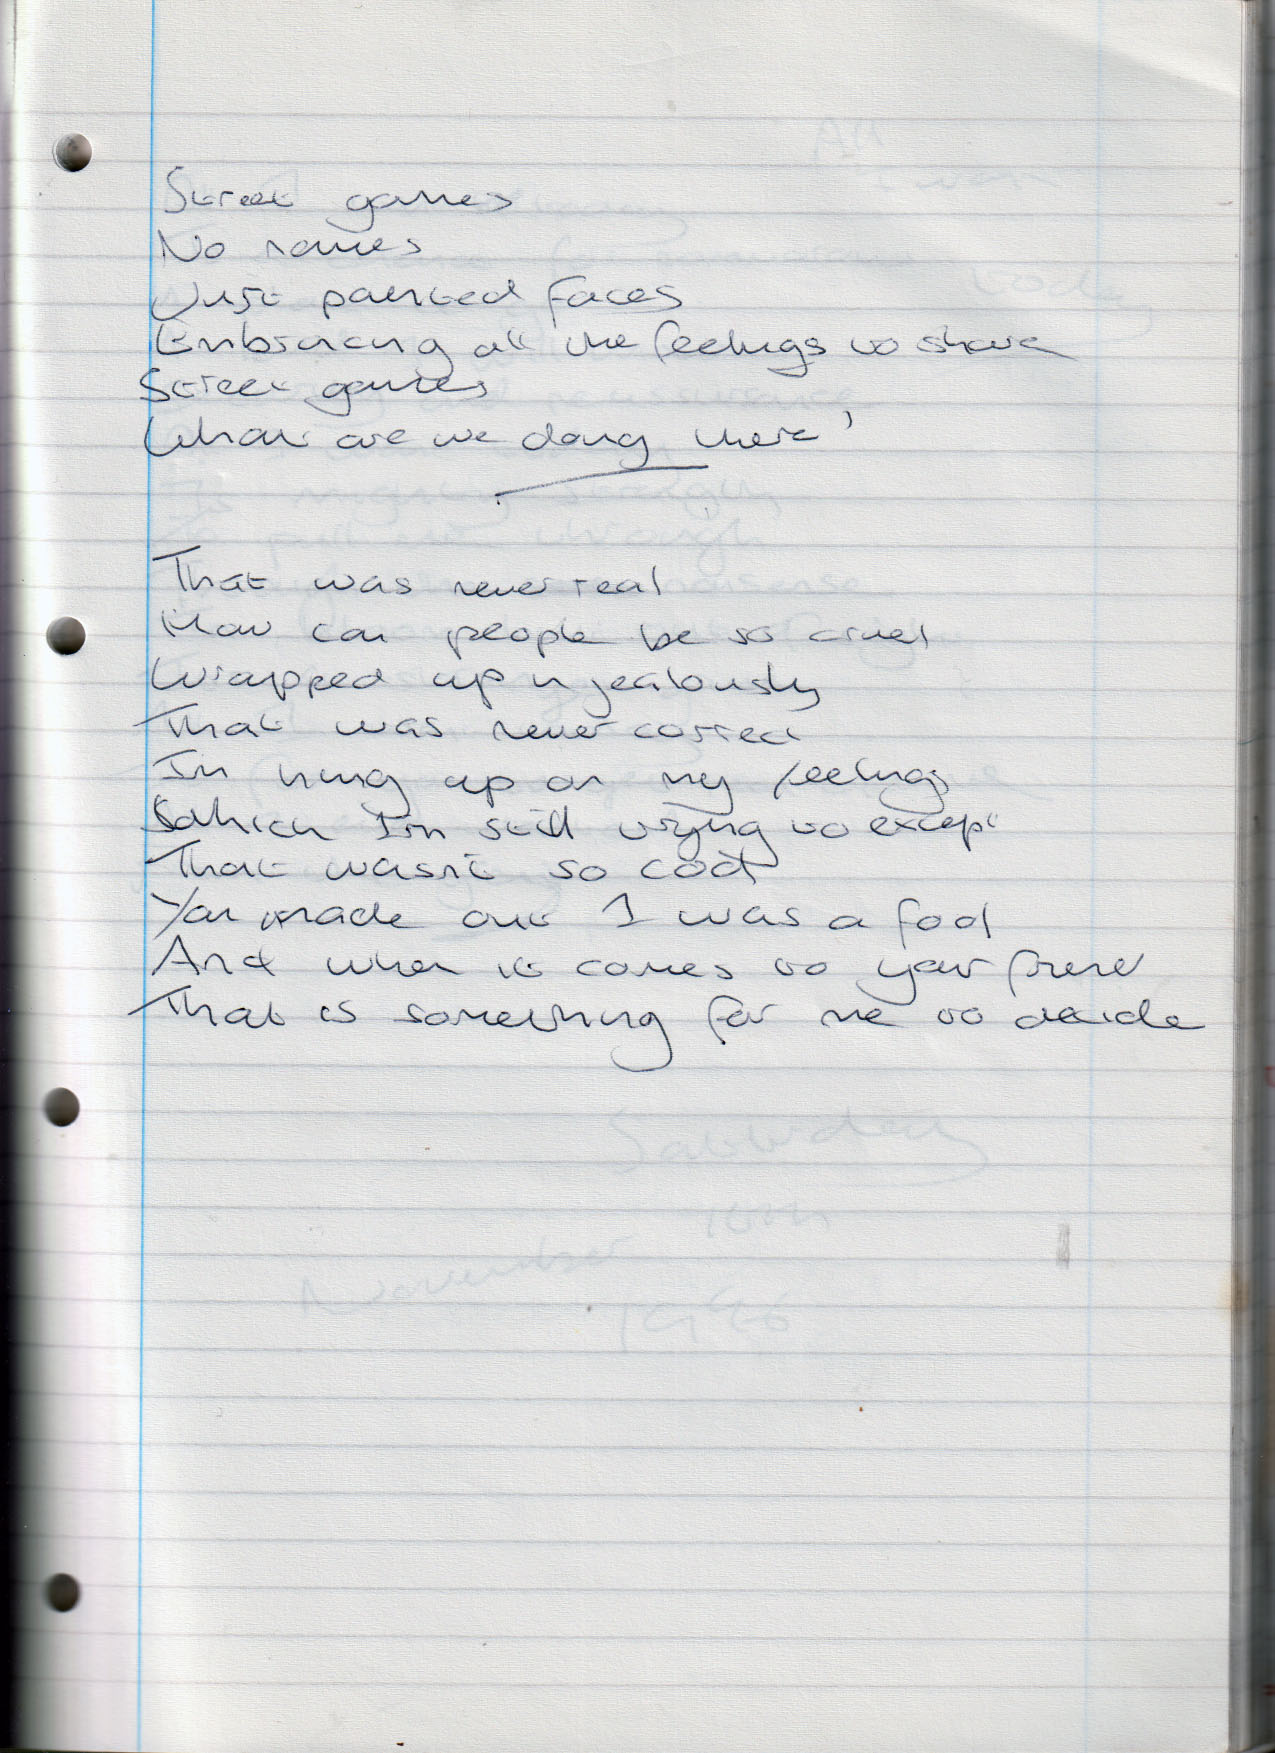 Street games
No names
Just painted faces
Embracing all the feelings to share
Street games
What are we doing there'
That was never real
How can people be so cruel
Wrapped up in jealously
That was never correct
Im hung up on my feelings
Which Im still trying to except
That wasnt so cool
You made out I was a fool
And when it comes to your friend
That is something for me to decide
Saturday
16th
November
1996